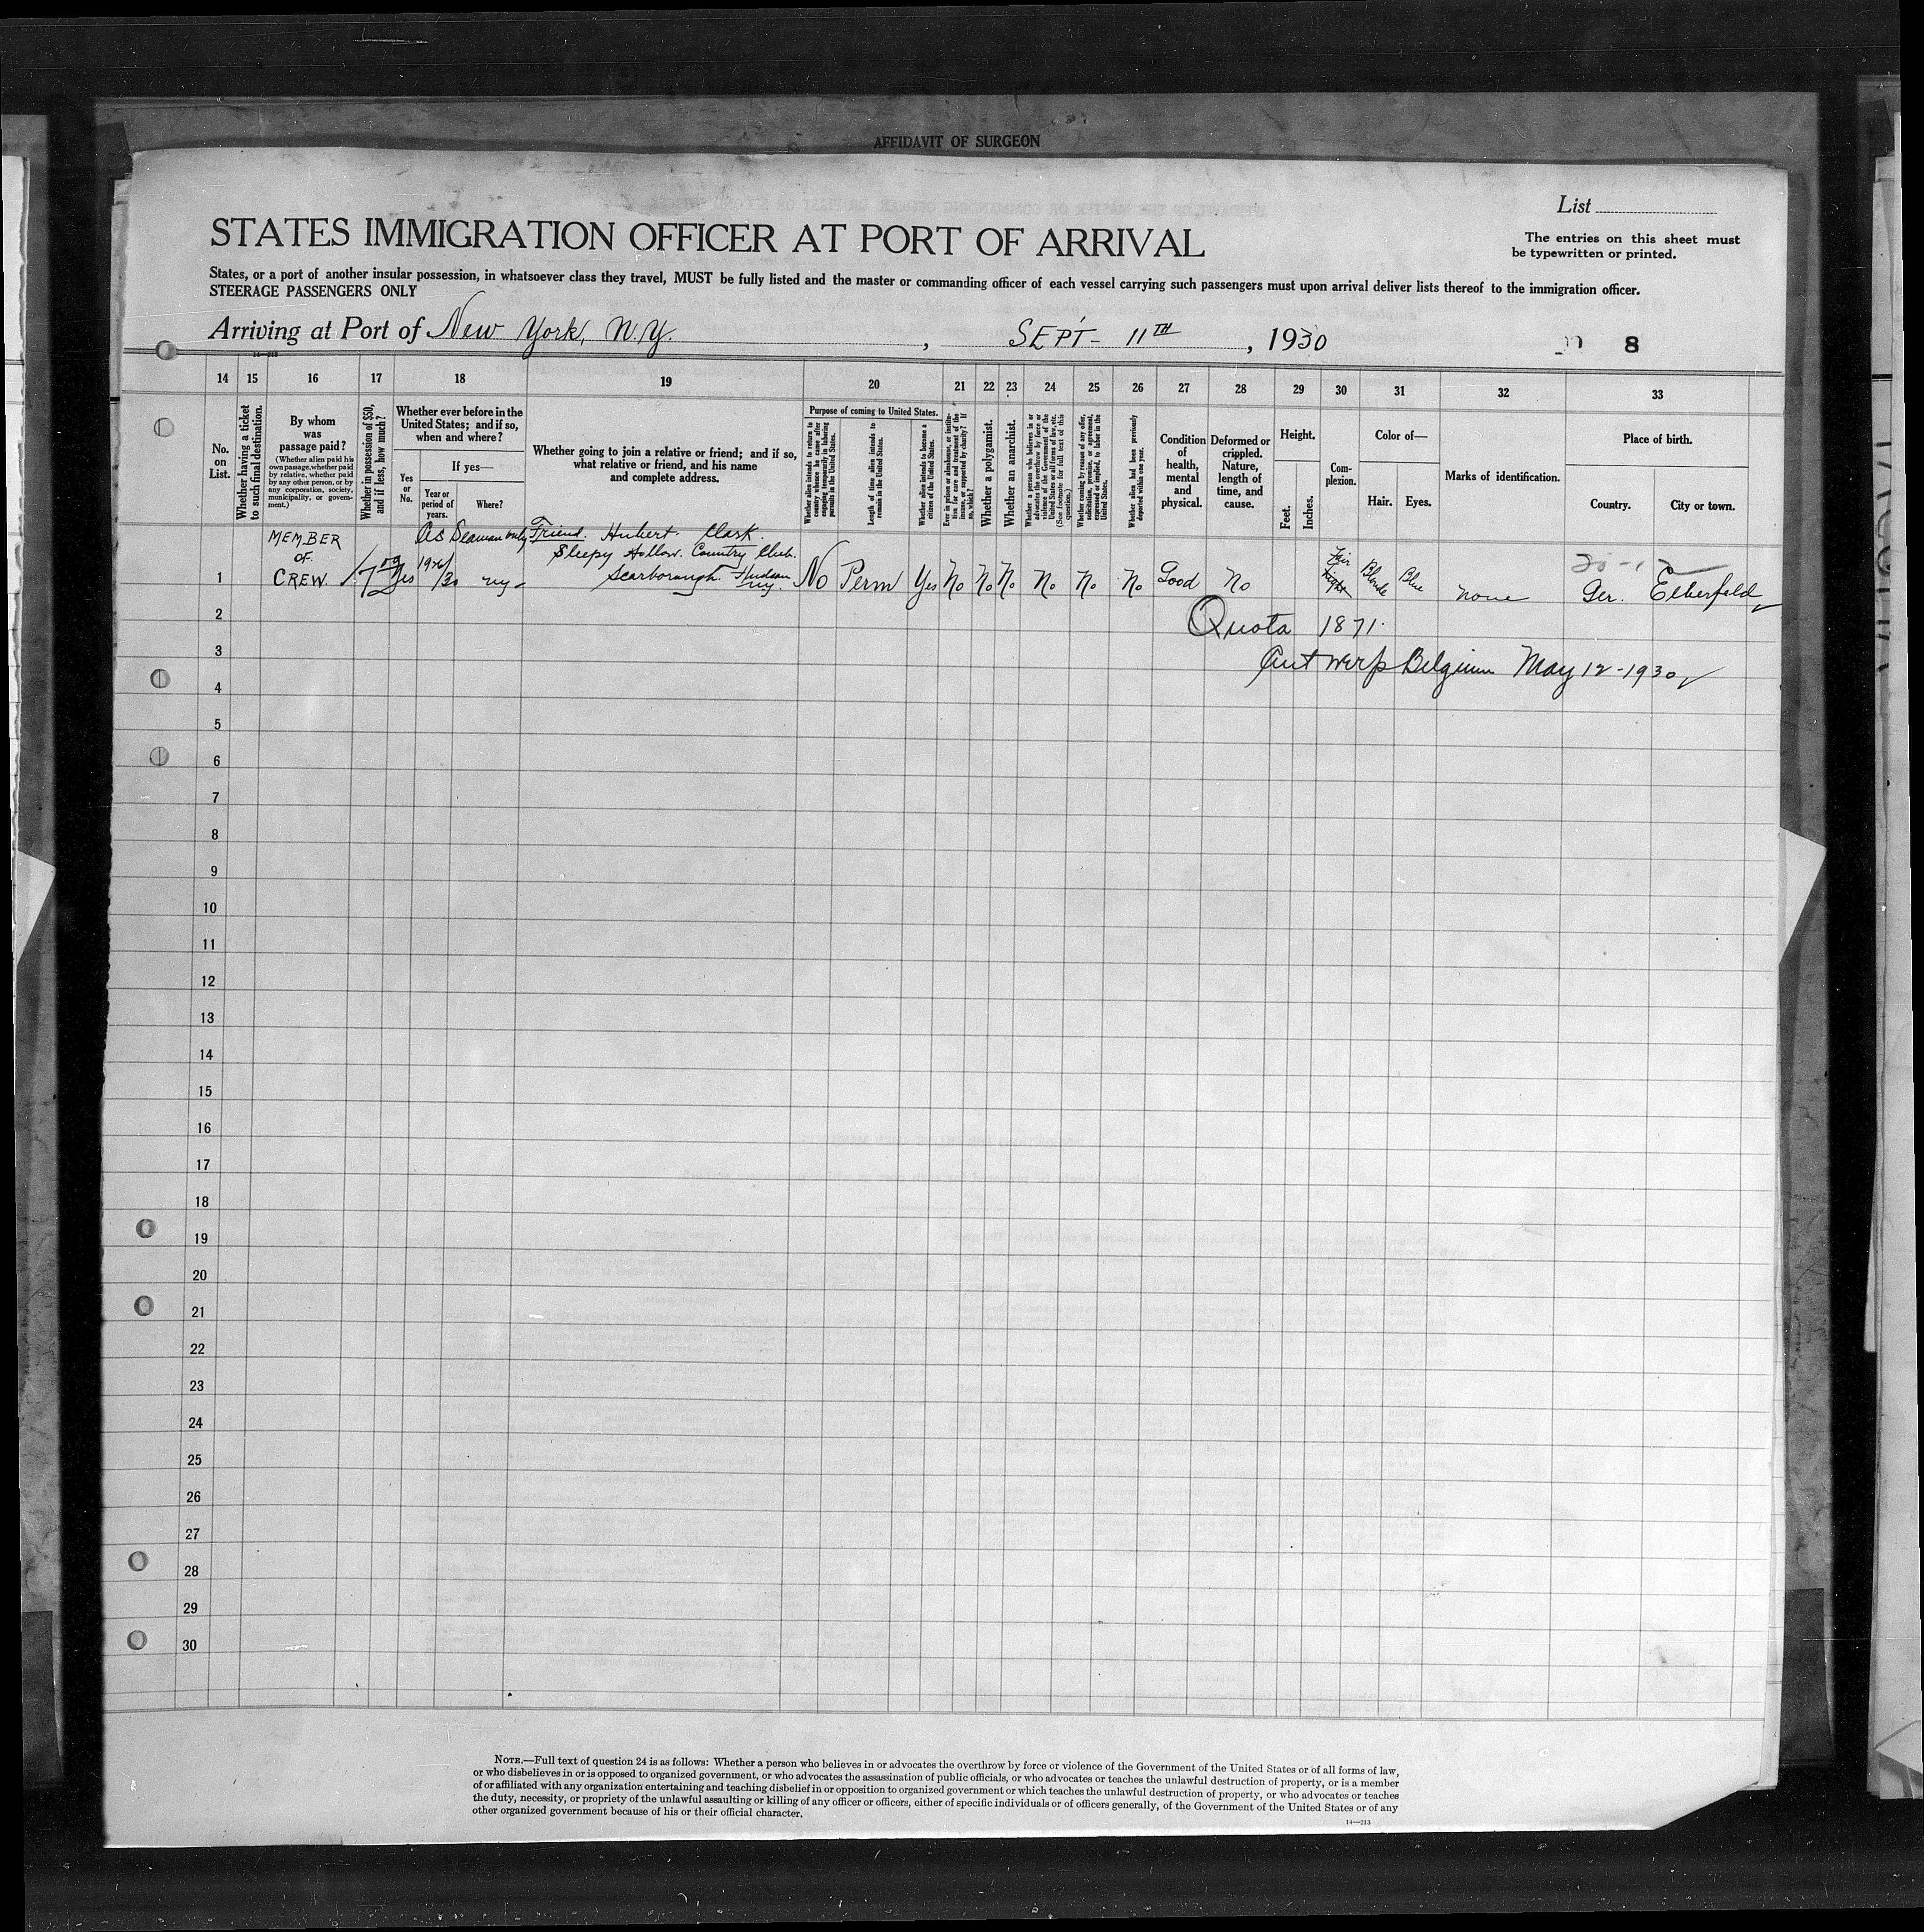 AFFIDAVIT OF SURGEON
List
STATES IMMIGRATION OFFICER AT PORT OF ARRIVAL
The entries on this sheet must
be typewritten or printed.
States, or a port of another insular possession, in whatsoever class they travel, MUST be fully listed and the master or commanding officer of each vessel carrying such passengers must upon arrival deliver lists thereof to the immigration officer.
STEERAGE PASSENGERS ONLY
Arriving at Port of New York, N.Y. , SEPT- 11TH , 1930
8
14 15 16 17 18 19 20 21 22 23 24 25 26 27 28 29 30 31 32 33
No. on List.
Whether having a ticket to such final destination.
By whom was passage paid?
(Whether alien paid his own passage, whether paid by relative, whether paid by any other person, or by any corporation, society, municipality, or government.)
Whether in possession of $50, and if less, how much?
Whether ever before in the United States; and if so, when and where?
Yes or No.
If yes—
Year or period of years.
Where?
Whether going to join a relative or friend; and if so, what relative or friend, and his name and complete address.
Purpose of coming to United States.
Whether alien intends to return to country whence he came after engaging temporarily in laboring pursuits in the United States.
Length of time alien intends to remain in the United States.
Whether alien intends to become a citizen of the United States.
Ever in prison or almshouse, or institution for care and treatment of the insane, or supported by charity? If so, which?
Whether a polygamist.
Whether an anarchist.
Whether a person who believes in or advocates the overthrow by force or violence of the Government of the United States or all forms of law, etc. (See footnote for full text of this question.)
Whether coming by reason of any offer, solicitation, promise, or agreement, expressed or implied, to labor in the United States.
Whether alien had been previously deported within one year.
Condition of health, mental and physical.
Deformed or crippled. Nature, length of time, and cause.
Height.
Feet.
Inches.
Complexion.
Color of—
Hair.
Eyes.
Marks of identification.
Place of birth.
Country.
City or town.
MEMBER As Seaman only Friend. Hubert Clark.
OF Sleepy Hollow Country Club.
1 CREW Yes 1926/30 ny- Scarborough Hudson N.Y. No Perm Yes No No No No No No Good No Fair Blonde Blue none Ger. Elberfeld
2 Quota 1871.
3 Antwerp Belgium May 12-1930
4
5
6
7
8
9
10
11
12
13
14
15
16
17
18
19
20
21
22
23
24
25
26
27
28
29
30
NOTE.—Full text of question 24 is as follows: Whether a person who believes in or advocates the overthrow by force or violence of the Government of the United States or of all forms of law,
or who disbelieves in or is opposed to organized government, or who advocates the assassination of public officials, or who advocates or teaches the unlawful destruction of property, or is a member
of or affiliated with any organization entertaining and teaching disbelief in or opposition to organized government or which teaches the unlawful destruction of property, or who advocates or teaches
the duty, necessity, or propriety of the unlawful assaulting or killing of any officer or officers, either of specific individuals or of officers generally, of the Government of the United States or of any
other organized government because of his or their official character.
14—213